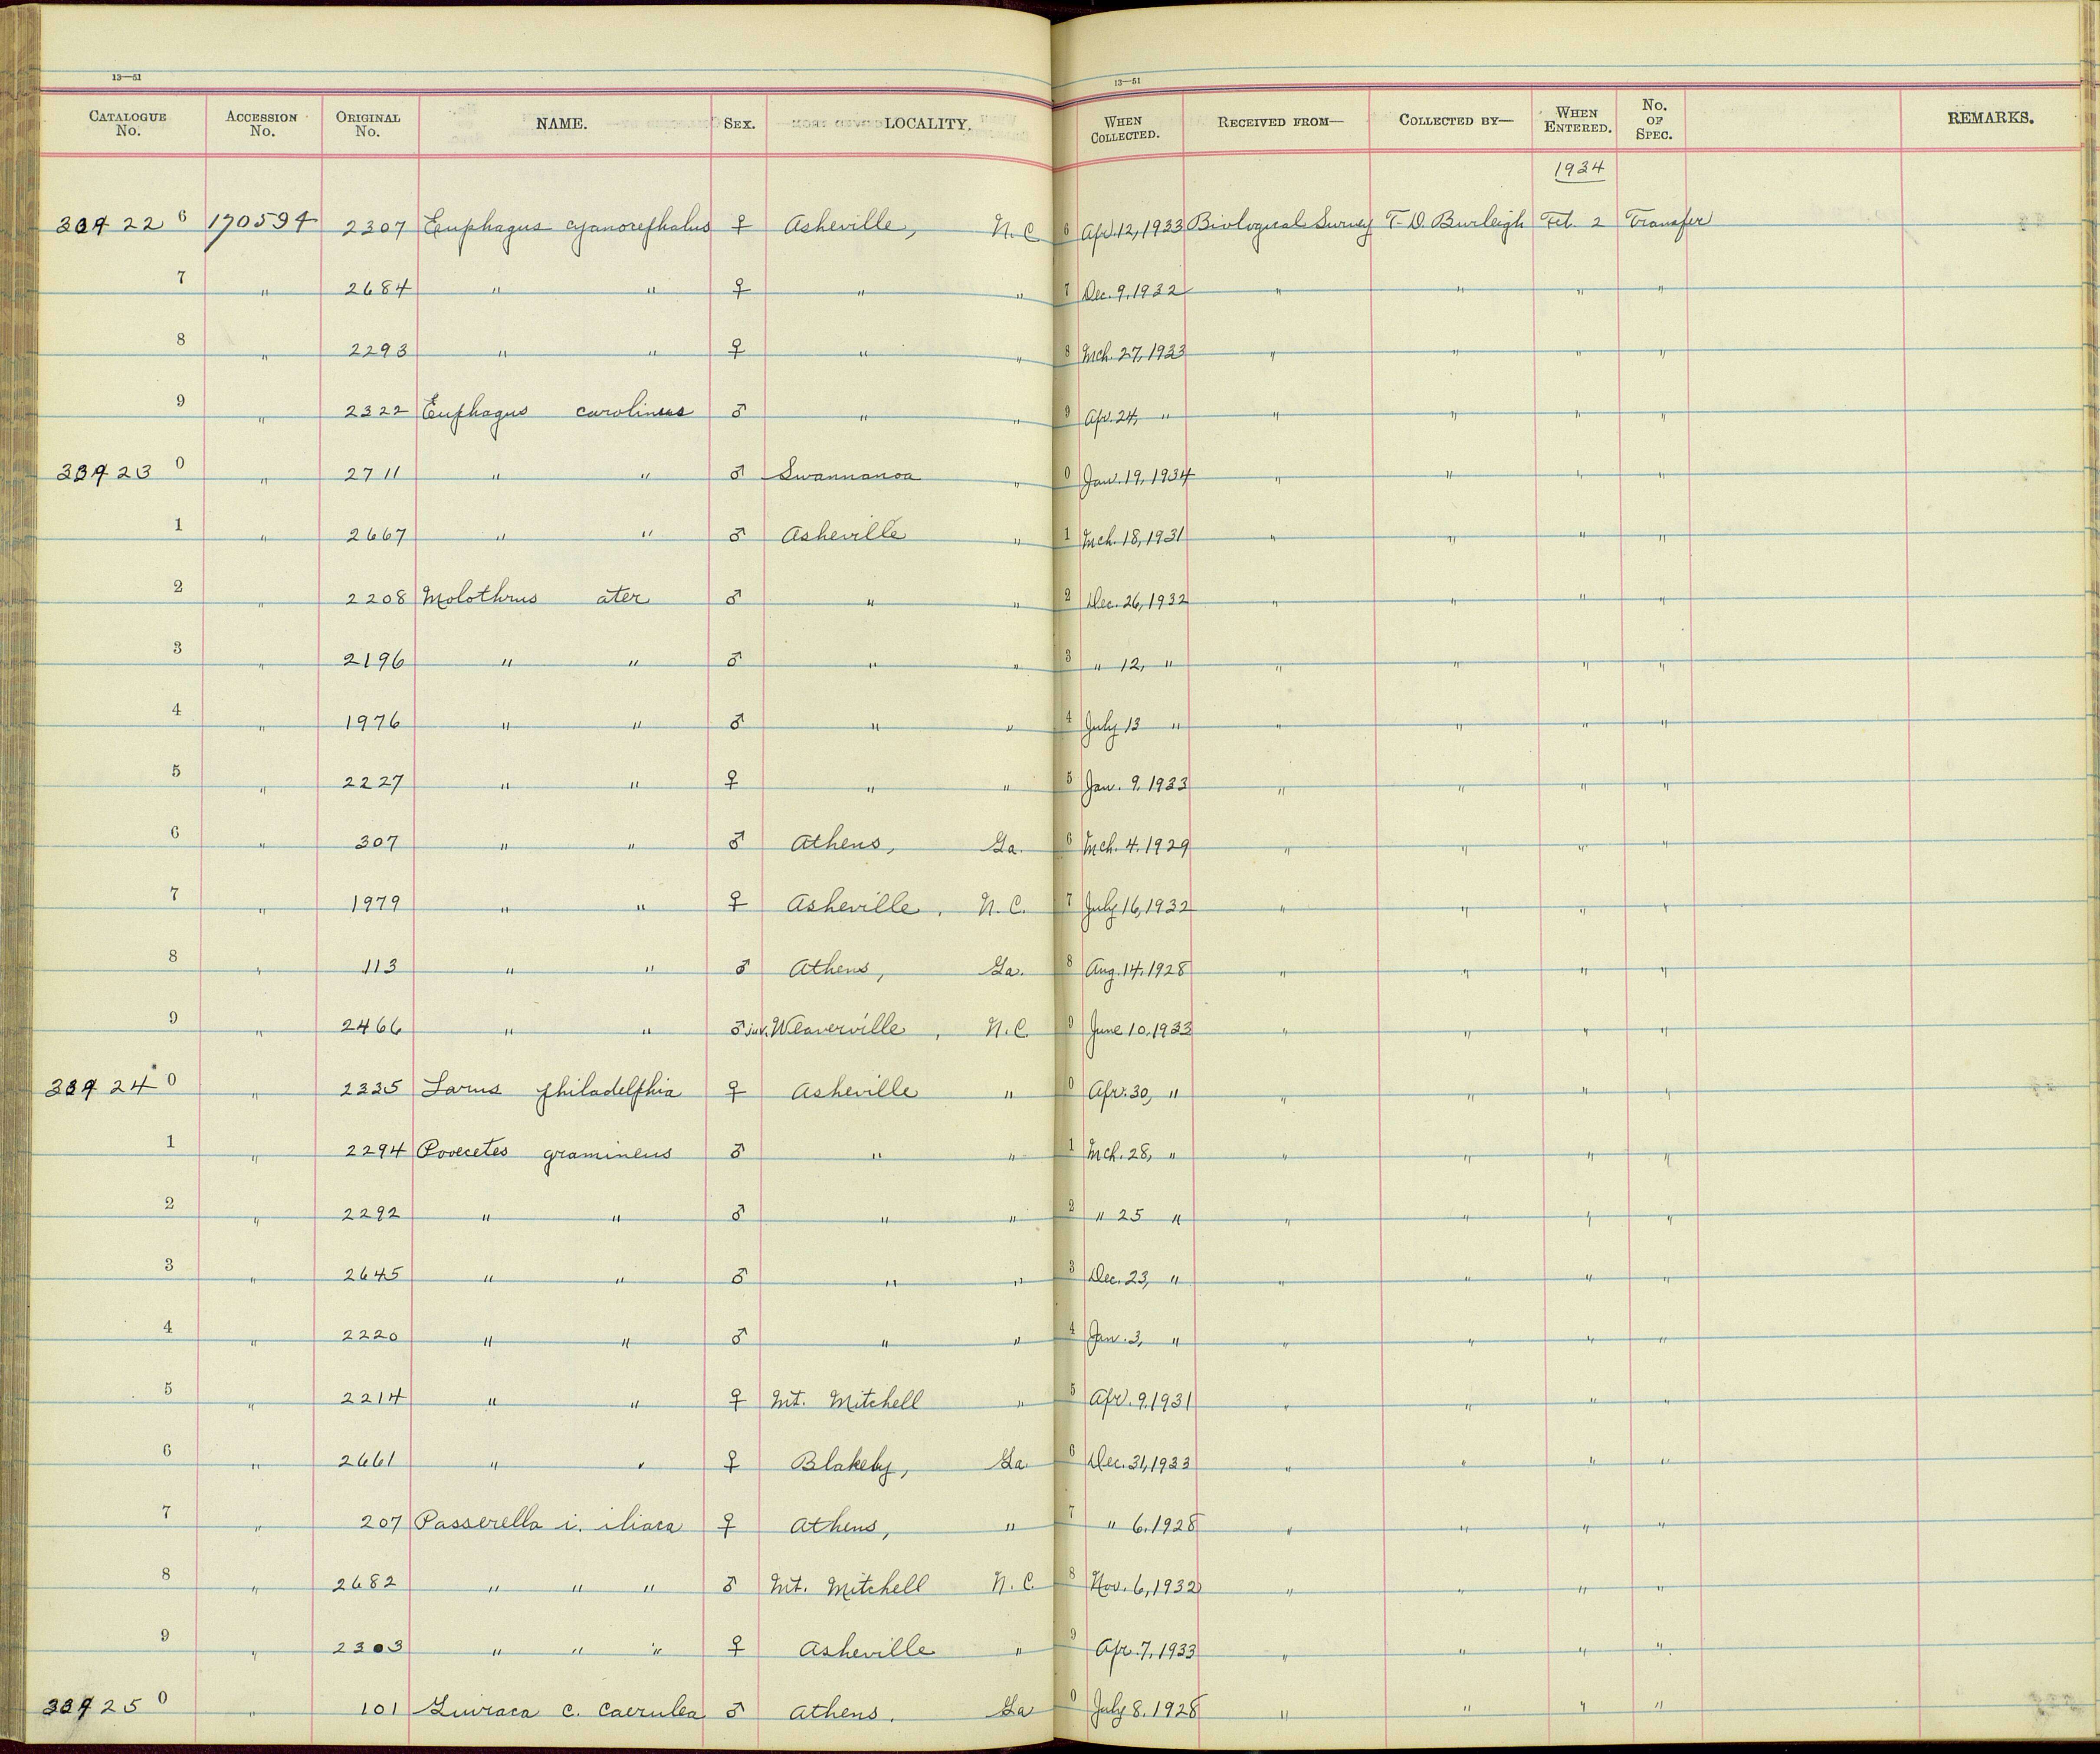 13—51
13—51
CATALOGUE No. ACCESSION No. ORIGINAL No. NAME. SEX. LOCALITY. WHEN COLLECTED. RECEIVED FROM— COLLECTED BY— WHEN ENTERED. No. OF SPEC. REMARKS.
1934
22 6 170594 2307 Euphagus cyanocephalus ♀ Asheville, N. C 6 Apr. 12, 1933 Biological Survey T. D. Burleigh Feb. 2 Transfer
7 " 2684 " " ♀ " " 7 Dec. 9, 1932 " " " "
8 " 2293 " " ♀ " " 8 Mch. 27, 1933 " " " "
9 " 2322 Euphagus carolinus ♂ " " 9 Apr. 24, " " " " "
23 0 " 2711 " " ♂ Swannanoa " 0 Jan. 19, 1934 " " " "
1 " 2667 " " ♂ Asheville " 1 Mch. 18, 1931 " " " "
2 " 2208 Molothrus ater ♂ " " 2 Dec. 26, 1932 " " " "
3 " 2196 " " ♂ " " 3 " 12, " " " " "
4 " 1976 " " ♂ " " 4 July 13 " " " " "
5 " 2227 " " ♀ " " 5 Jan. 9, 1933 " " " "
6 " 307 " " ♂ Athens, Ga. 6 Mch. 4. 1929 " " " "
7 " 1979 " " ♀ Asheville, N. C. 7 July 16, 1932 " " " "
8 " 113 " " ♂ Athens, Ga. 8 Aug. 14. 1928 " " " "
9 " 2466 " " ♂ juv. Weaverville, N. C. 9 June 10, 1933 " " " "
24 0 " 2335 Larus philadelphia ♀ Asheville " 0 Apr. 30, " " " " "
1 " 2294 Poocetes gramineus ♂ " " 1 Mch. 28, " " " " "
2 " 2292 " " ♂ " " 2 " 25 " " " " "
3 " 2645 " " ♂ " " 3 Dec. 23, " " " " "
4 " 2220 " " ♂ " " 4 Jan. 3, " " " " "
5 " 2214 " " ♀ Mt. Mitchell " 5 Apr. 9. 1931 " " " "
6 " 2661 " " ♀ Blakely, Ga. 6 Dec. 31, 1933 " " " "
7 " 207 Passerella i. iliaca ♀ Athens, " 7 " 6. 1928 " " " "
8 " 2682 " " " ♂ Mt. Mitchell N. C. 8 Nov. 6, 1932 " " " "
9 " 2303 " " " ♀ Asheville " 9 Apr. 7, 1933 " " " "
25 0 " 101 Guiraca c. caerulea ♂ Athens. Ga 0 July 8. 1928 " " " "